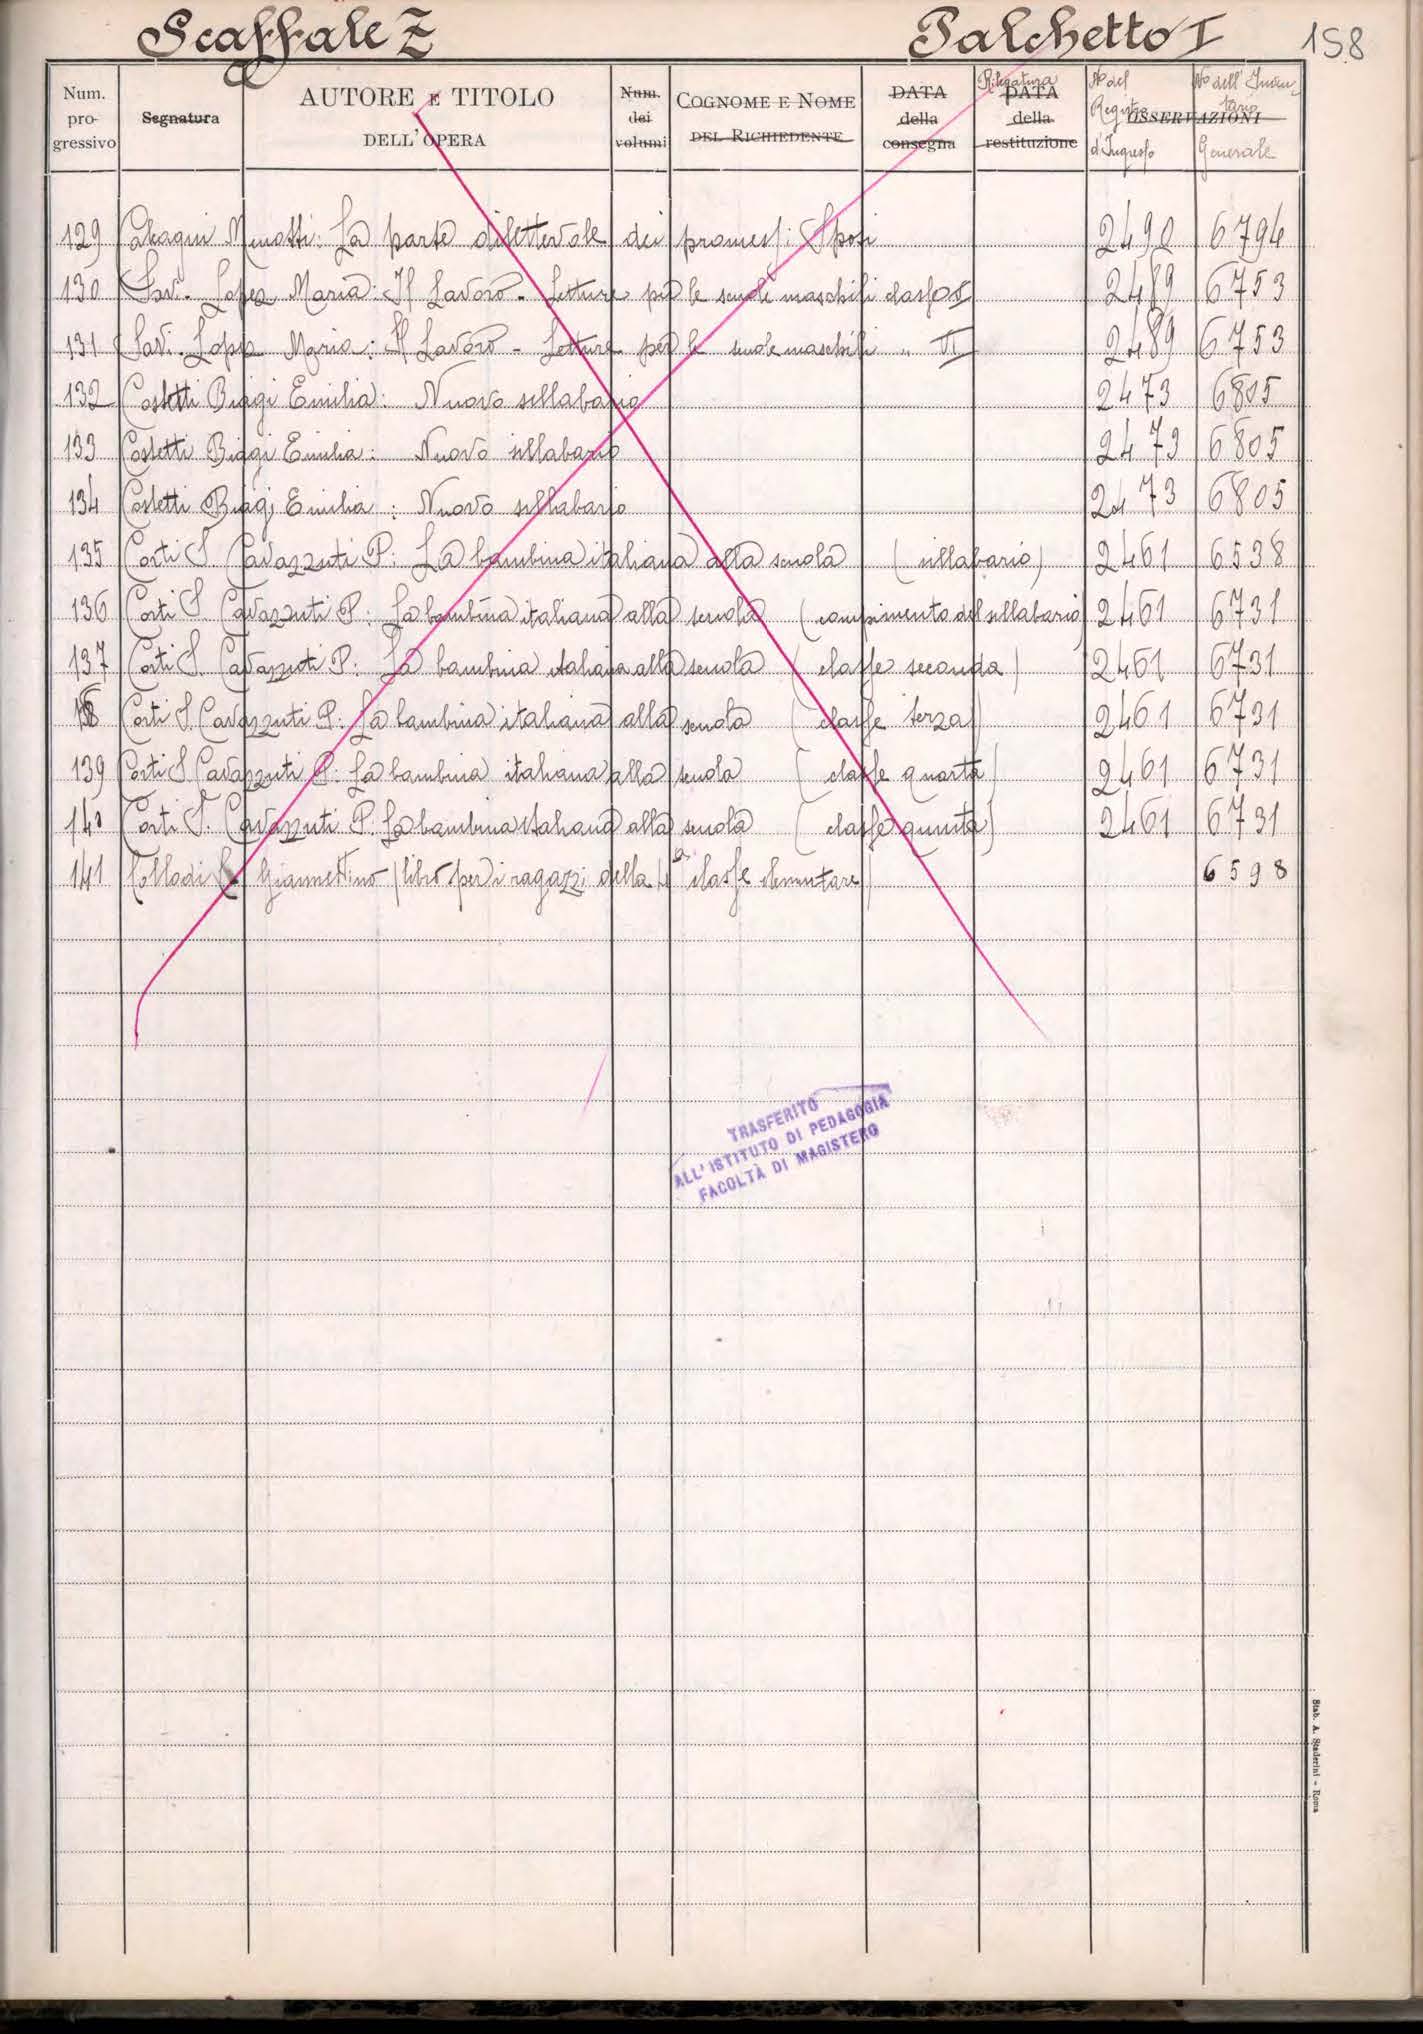 Scaffale Z Palchetto I 158
Num. progressivo Segnatura AUTORE E TITOLO DELL'OPERA Num. dei volumi COGNOME E NOME DEL RICHIEDENTE DATA della consegna Rilegatura DATA della restituzione No del Registro d'Ingresso OSSERVAZIONI No dell'Inventario Generale
129 Menotti: La parte dilettevole dei promessi Sposi 2490 6794
130 Savi-Lopez Maria: Il Lavoro - Letture per le scuole maschili classe V 2489 6753
131 Savi-Lopez Maria: Il Lavoro - Letture per le scuole maschili " VI 2489 6753
132 Costetti Biagi Emilia: Nuovo sillabario 2473 6805
133 Costetti Biagi Emilia: Nuovo sillabario 2473 6805
134 Costetti Biagi Emilia: Nuovo sillabario 2473 6805
135 Corti S. Cavazzuti P: La bambina italiana alla scuola (sillabario) 2461 6538
136 Corti S. Cavazzuti P: La bambina italiana alla scuola (compimento del sillabario) 2461 6731
137 Corti S. Cavazzuti P: La bambina italiana alla scuola (classe seconda) 2461 6731
Corti S. Cavazzuti P: La bambina italiana alla scuola (classe terza) 2461 6731
139 Corti S. Cavazzuti P: La bambina italiana alla scuola (classe quarta) 2461 6731
140 Corti S. Cavazzuti P. La bambina italiana alla scuola (classe quinta) 2461 6731
141 Collodi C. Giannettino (libro per i ragazzi della classe elementare) 6598
TRASFERITO
ALL'ISTITUTO DI PEDAGOGIA
FACOLTÀ DI MAGISTERO
Stab. A. Staderini - Roma